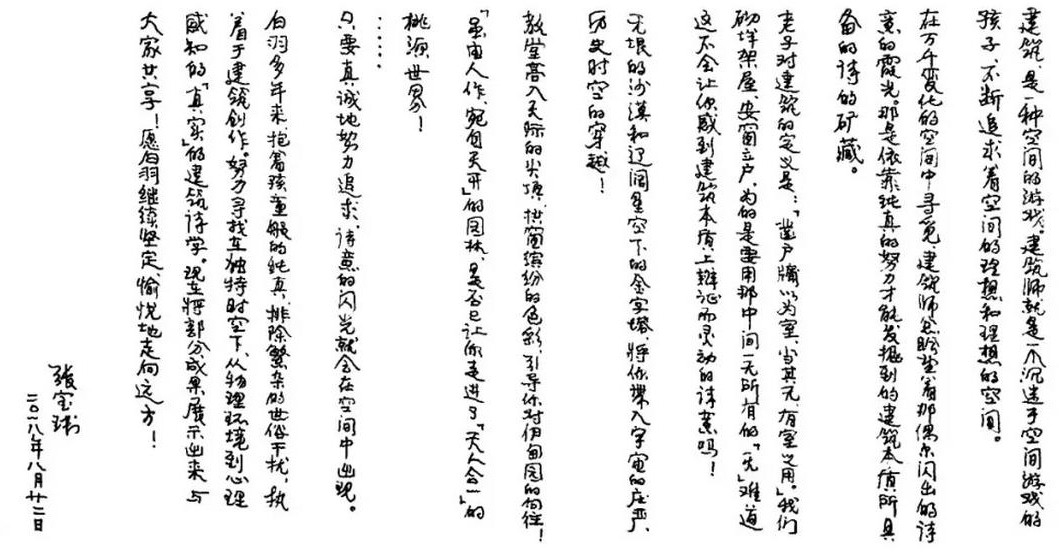 建筑,是一种空间的游戏。建筑师就是一个沉迷于空间游戏的
孩子,不断追求着空间的理想和理想的空间。
在万千变化的空间中寻觅,建筑师总盼望着那偶尔闪出的诗
意的霞光。那是依靠纯真的努力才能发掘到的建筑本质所具
备的诗的矿藏。
老子对建筑的定义是:“凿户牖以为室,当其无,有室之用。”我们
砌墙架屋,安窗立户,为的是要用那中间一无所有的“无”,难道
这不会让你感到建筑本质上辩证而灵动的诗意吗!
无垠的沙漠和辽阔星空下的金字塔,将你带入宇宙的庄严、
历史时空的穿越!
教堂高入天际的尖顶,拱窗缤纷的色彩,引导你对伊甸园的向往!
“虽由人作,宛自天开”的园林,是否已让你走进了“天人合一”的
桃源世界!
……
只要真诚地努力追求,诗意的闪光就会在空间中出现。
白羽多年来,抱着孩童般的纯真,排除繁杂的世俗干扰,执
着于建筑创作。努力寻找在独特时空下,从物理环境到心理
感知的“真实”的建筑诗学。现在将部分成果展示出来,与
大家共享!愿白羽继续坚定、愉悦地走向远方!
张宝球
二〇一八年八月廿二日